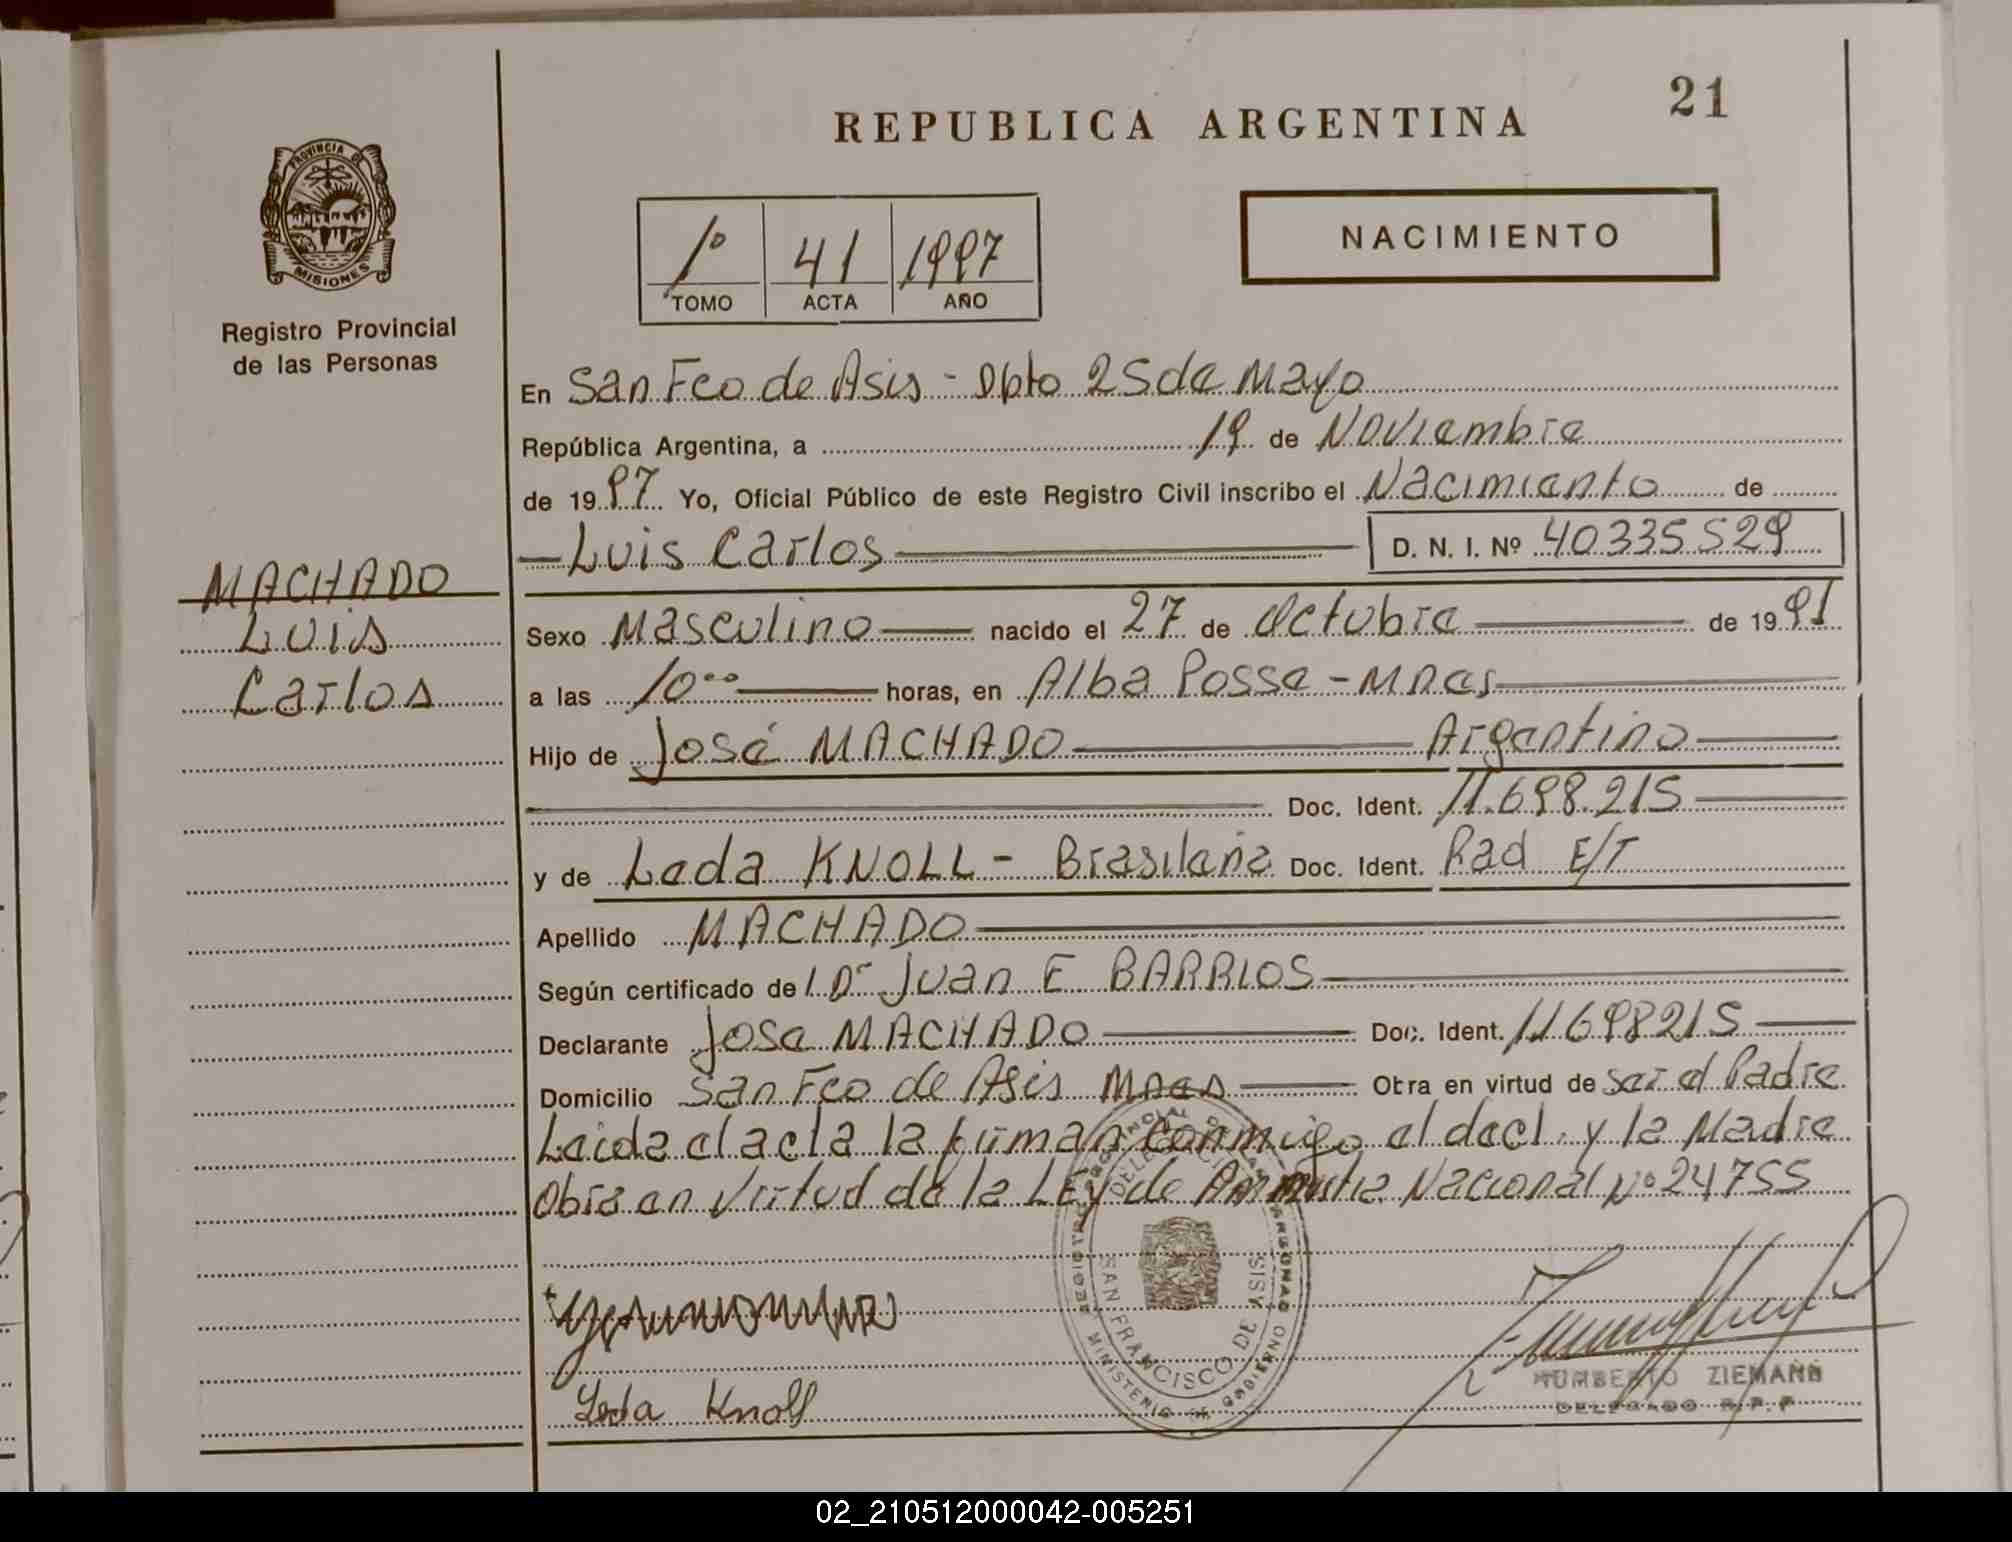 21
REPUBLICA ARGENTINA
PROVINCIA DE
MISIONES
Registro Provincial
de las Personas
1º 41 1997
TOMO ACTA AÑO
NACIMIENTO
En San Fco de Asis - Dpto 25 de Mayo
República Argentina, a 19 de Noviembre
de 1997 Yo, Oficial Público de este Registro Civil inscribo el Nacimiento de
Luis Carlos D. N. I. Nº 40335529
MACHADO
Luis
Carlos
Sexo Masculino nacido el 27 de Octubre de 1991
a las 10 00 horas, en Alba Posse - Mnes
Hijo de José MACHADO Argentino
Doc. Ident. 11.698.215
y de Leda KNOLL - Brasileña Doc. Ident. Rad E/T
Apellido MACHADO
Según certificado de l Dr Juan E BARRIOS
Declarante Jose MACHADO Doc. Ident. 11698215
Domicilio San Fco de Asis Mnes Otra en virtud de ser el Padre
Leida el acta la firman conmigo el decl. y la Madre
Obra en virtud de la Ley de Amnistia Nacional Nº 24755
Leda Knoll
SAN FRANCISCO DE ASIS
MINISTERIO DE GOBIERNO
HUMBERTO ZIEMANN
DELEGADO R.P.P
02_210512000042-005251